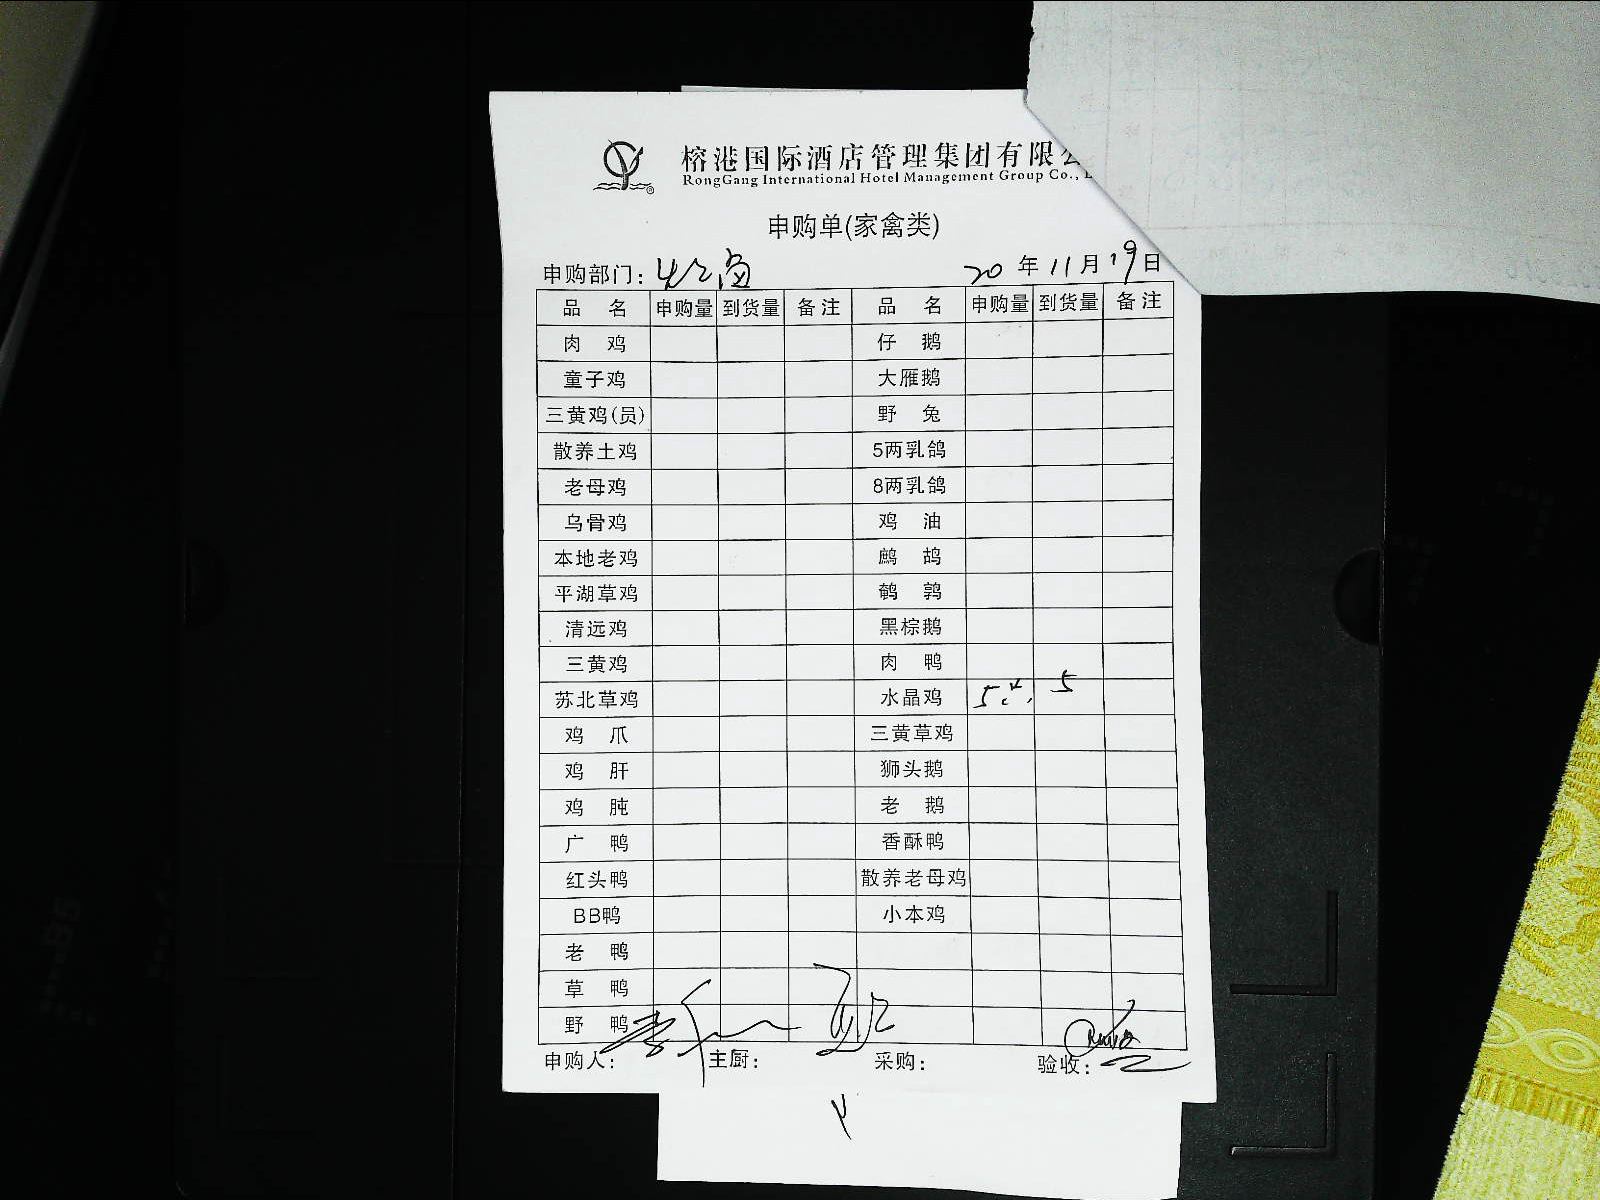 榕港国际酒店管理集团有限公
RongGang International Hotel Management Group Co.,
申购单(家禽类)
申购部门: 20 年 11 月 19 日
品 名 申购量 到货量 备注 品 名 申购量 到货量 备注
肉 鸡 仔 鹅
童子鸡 大雁鹅
三黄鸡(员) 野 兔
散养土鸡 5两乳鸽
老母鸡 8两乳鸽
乌骨鸡 鸡 油
本地老鸡 鹧 鸪
平湖草鸡 鹌 鹑
清远鸡 黑棕鹅
三黄鸡 肉 鸭
苏北草鸡 水晶鸡 5 5
鸡 爪 三黄草鸡
鸡 肝 狮头鹅
鸡 肫 老 鹅
广 鸭 香酥鸭
红头鸭 散养老母鸡
BB鸭 小本鸡
老 鸭
草 鸭
野 鸭
申购人: 主厨: 采购: 验收: